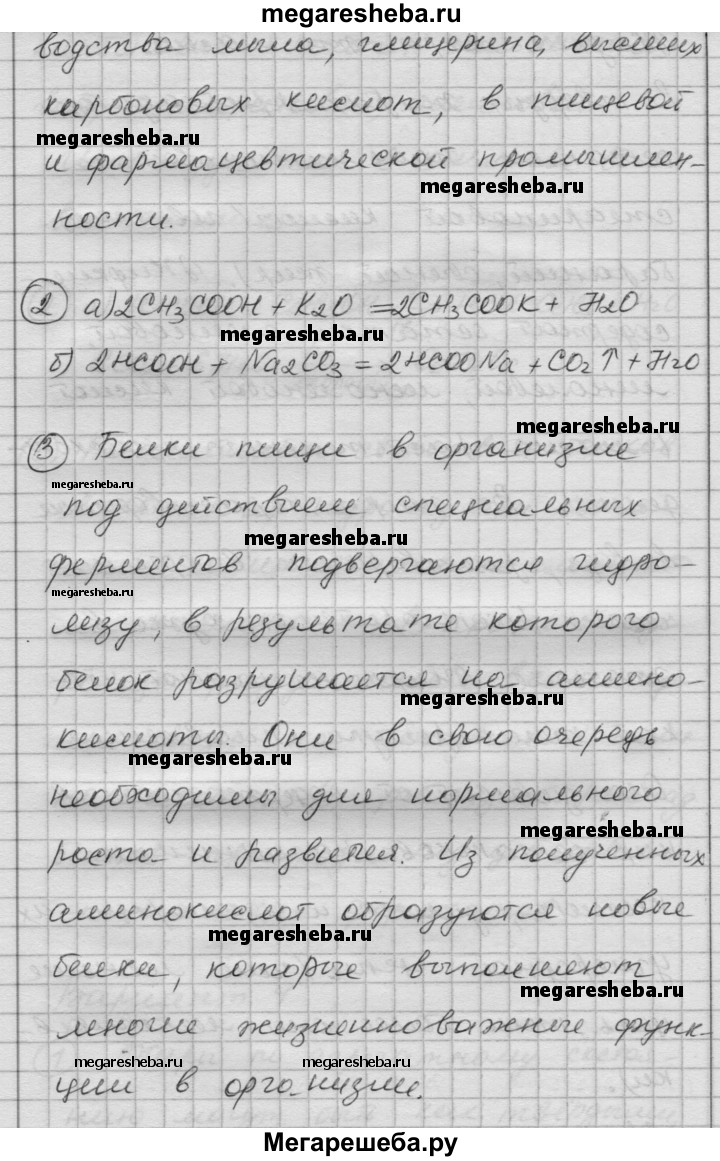 megaresheba.ru
водства мыла, глицерина, высших
карбоновых кислот, в пищевой
megaresheba.ru
и фармацевтической промышлен-
megaresheba.ru
ности.
2 а) 2CH3COOH + K2O = 2CH3COOK + H2O
megaresheba.ru
б) 2HCOOH + Na2CO3 = 2HCOONa + CO2↑ + H2O
megaresheba.ru
3 Белки пищи в организме
megaresheba.ru
под действием специальных
megaresheba.ru
ферментов подвергаются гидро-
megaresheba.ru
лизу, в результате которого
белок разрушается на амино-
megaresheba.ru
кислоты. Они в свою очередь
megaresheba.ru
необходимы для нормального
megaresheba.ru
роста и развития. Из полученных
аминокислот образуются новые
megaresheba.ru
белки, которые выполняют
megaresheba.ru
многие жизненноважные функ-
megaresheba.ru megaresheba.ru
ции в организме.
Мегарешеба.ру